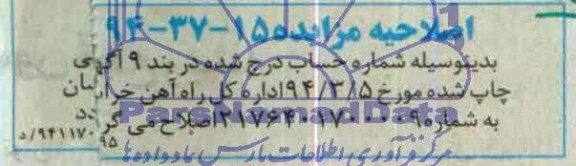 اصلاحیه مزایده ۱۵-۳۷-۹۴
بدینوسیله شماره حساب درج شده در بند ۹ آگهی
چاپ شده مورخ ۹۴/۳/۵ اداره کل راه آهن خراسان
به شماره ۲۱۷۶۴۰۱۷۰۰۰۰۰۹ اصلاح می گردد
۹۴۱۱۷۰۹۵/د
ParsNamadData
مرکز فرآوری اطلاعات پارس نماد داده ها